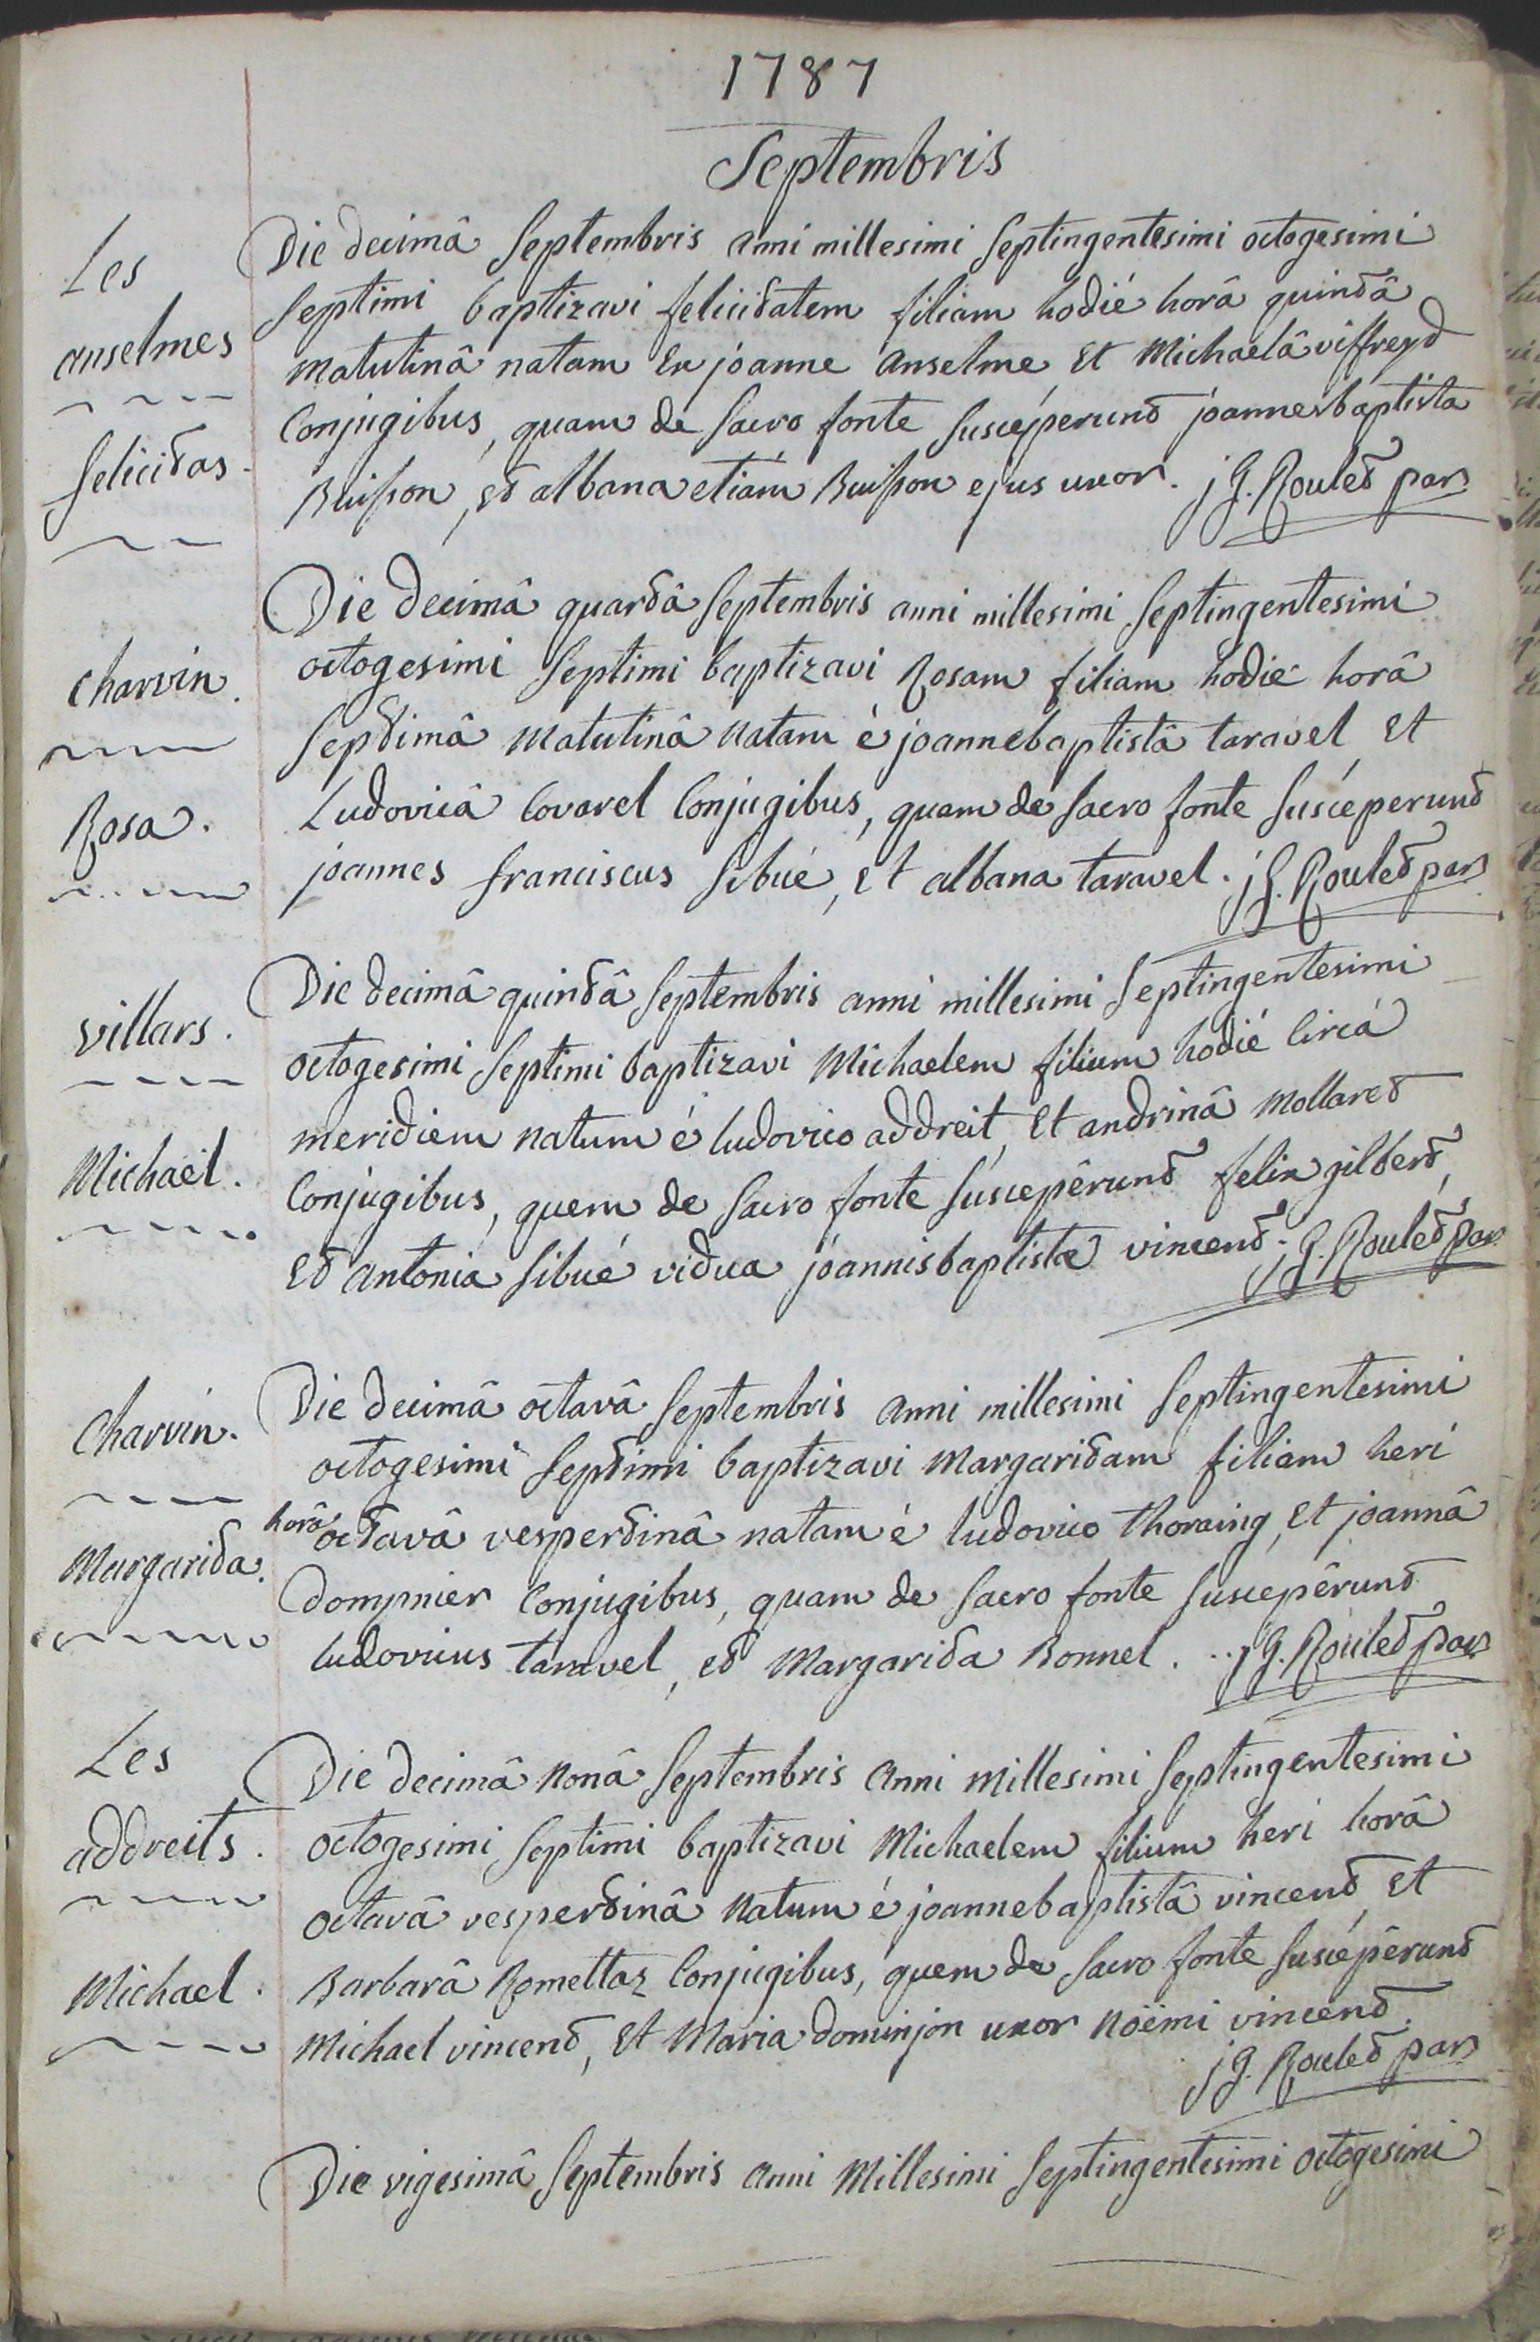 1787
Septembris
Les
anselmes
felicitas.
Die decimâ Septembris anni millesimi Septingentesimi octogesimi
Septimi baptizavi felicitatem filiam hodié horâ quintâ
matutinâ natam Ex joanne Anselme Et Michaelâ viffreyd
Conjugibus, quam de Sacro fonte Suscéperunt joannesbaptista
Buisson, et albana etiám Buisson ejus uxor. j G. Roulet par
charvin.
Rosa.
Die decimâ quartâ Septembris anni millesimi Septingentesimi
octogesimi Septimi baptizavi Rosam filiam hodié horâ
Septimâ Matutinâ Natam é joannebaptistâ taravel Et
Ludovicâ Covarel Conjugibus, quam de Sacro fonte Suscéperunt
joannes franciscus Sibué, Et albana taravel. j G. Roulet par
villars.
Michaël.
Die decimâ quintâ Septembris anni millesimi Septingentesimi
octogesimi Septimi baptizavi Michaelem filium hodié Circá
meridiem Natum é ludovico addreit, Et andrinâ Mollaret
Conjugibus, quem de Sacro fonte Suscepêrunt felix gilbert,
Et antonia Sibué vidua joannisbaptistæ vincent. j G. Roulet par
Charvin.
Margarita.
Die decimâ octavâ Septembris anni millesimi Septingentesimi
octogesimi Septimi baptizavi Margaritam filiam heri
horâ octavâ vespertinâ natam é ludovico thoraing, Et joannâ
Dompnier Conjugibus, quam de Sacro fonte Suscepêrunt
ludovicus taravel, et Margarita Bonnel. .. j G. Roulet par
Les
addreits.
Michael.
Die decimâ nonâ Septembris Anni Millesimi Septingentesimi
octogesimi Septimi baptizavi Michaelem filium heri horâ
octavâ vespertinâ Natum é joannebaptistâ vincent, Et
Barbarâ Romettaz Conjugibus, quem de Sacro fonte Suscépêrunt
Michael vincent, Et Maria dominjon uxor Noëmi vincent.
j G. Roulet par
Die vigesimâ Septembris anni Millesimi Septingentesimi octogesimi